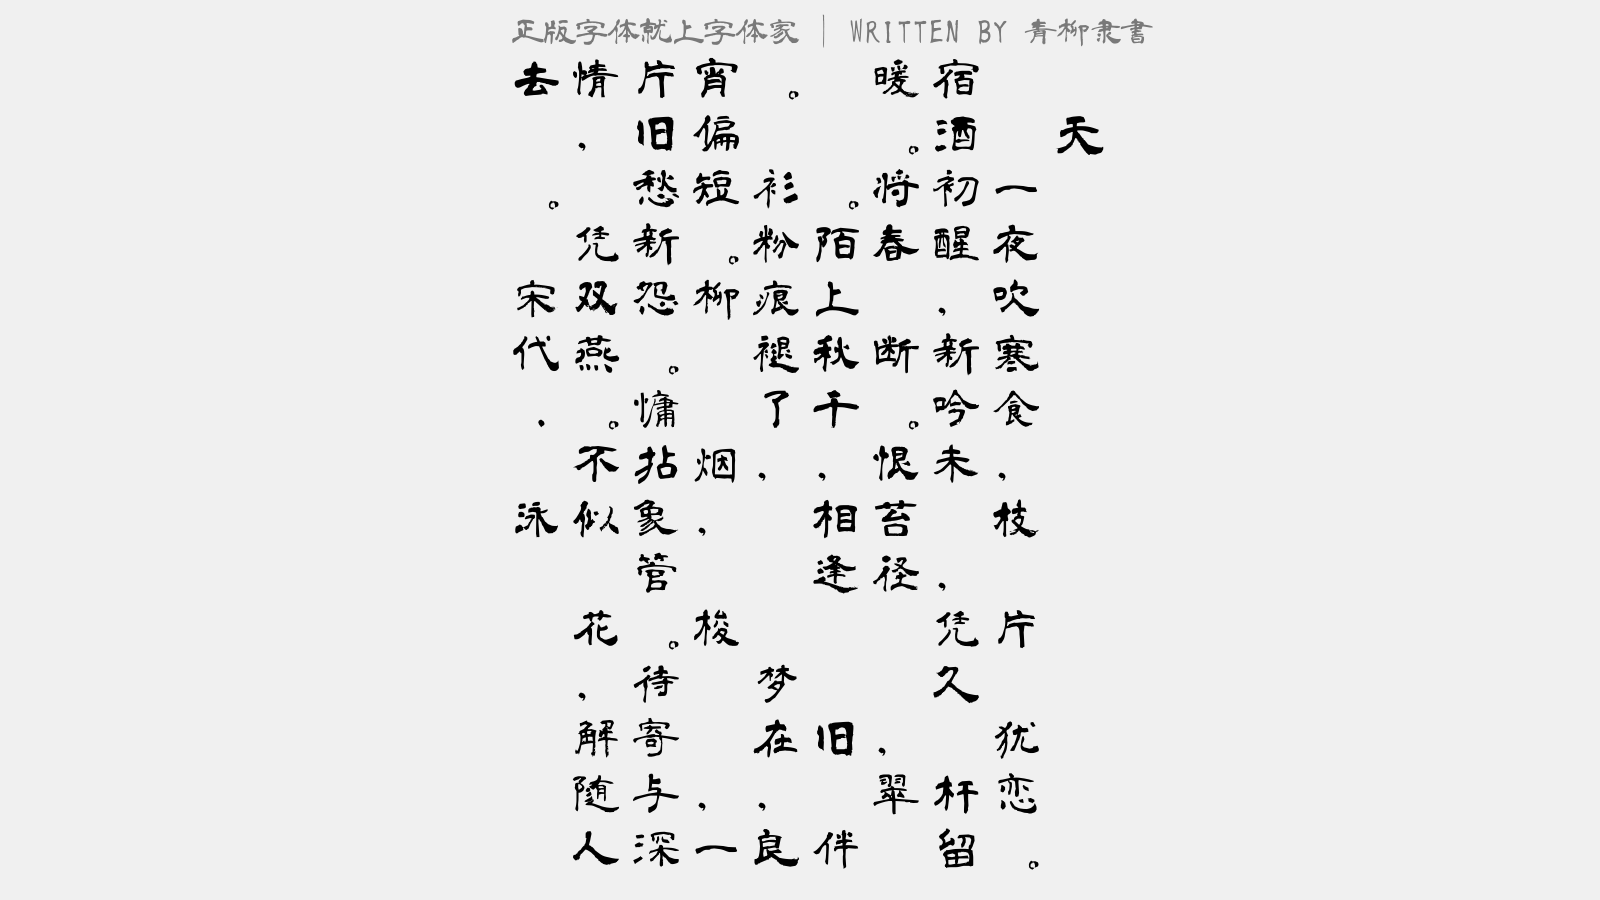 正版字体就上字体家 | WRITTEN BY 青柳隶書
天
一夜吹寒食，枝片犹恋。
宿酒初醒，新吟未，凭久杆留
暖。将春断。恨苔径，翠
。陌上秋千，相逢旧伴
。衫粉痕褪了，梦在，良
宵偏短。柳烟，梭，一
片旧愁新怨。慵拈象管。待寄与深
情，凭双燕。不似花，解随人
去。宋代．泳